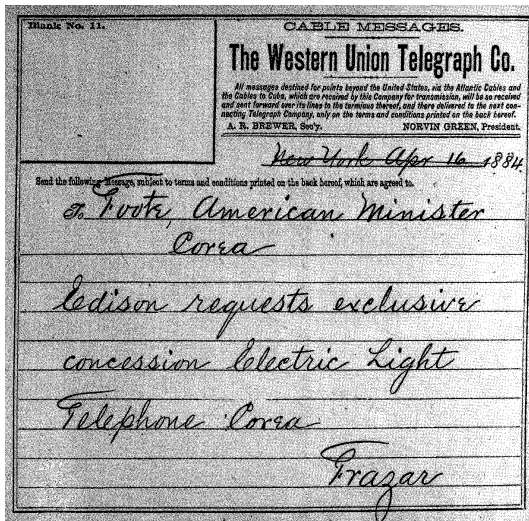 Blank No. 11.
CABLE MESSAGES.
The Western Union Telegraph Co.
All messages destined for points beyond the United States, via the Atlantic Cables and
the Cables to Cuba, which are received by this Company for transmission, will be so received
and sent forward over its lines to the terminus thereof, and there delivered to the next con-
necting Telegraph Company, only on the terms and conditions printed on the back hereof.
A. R. BREWER, Sec'y. NORVIN GREEN, President.
New York Apr 16 1884
Send the following Message, subject to terms and conditions printed on the back hereof, which are agreed to.
To Foote, American Minister
Corea
Edison requests exclusive
concession Electric Light
Telephone Corea
Frazar